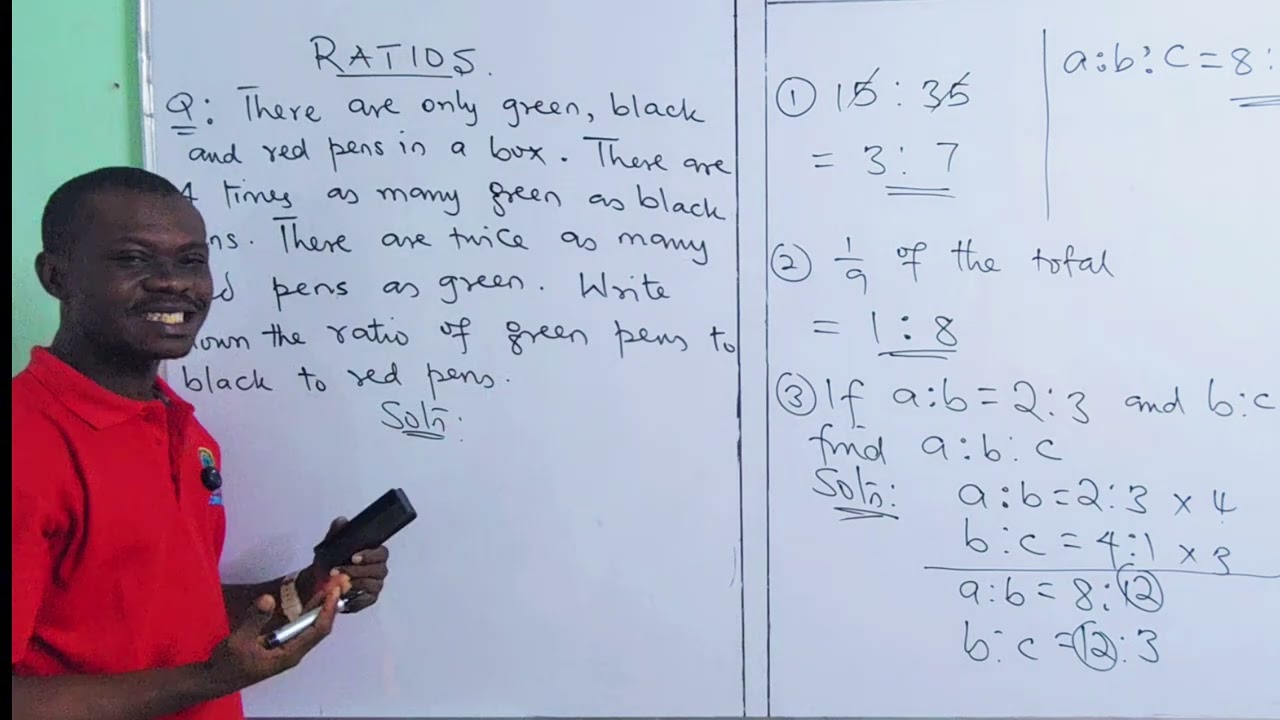 RATIOS.
Q: There are only green, black
and red pens in a box. There are
4 times as many green as black
ns. There are twice as many
d pens as green. Write
own the ratio of green pens to
black to red pens.
Soln:
① 15 : 35
= 3 : 7
a:b:c = 8:
② 1/9 of the total
= 1 : 8
③ If a:b = 2:3 and b:c
find a:b:c
Soln:
a:b = 2:3 × 4
b:c = 4:1 × 3
a:b = 8:12
b:c = 12:3